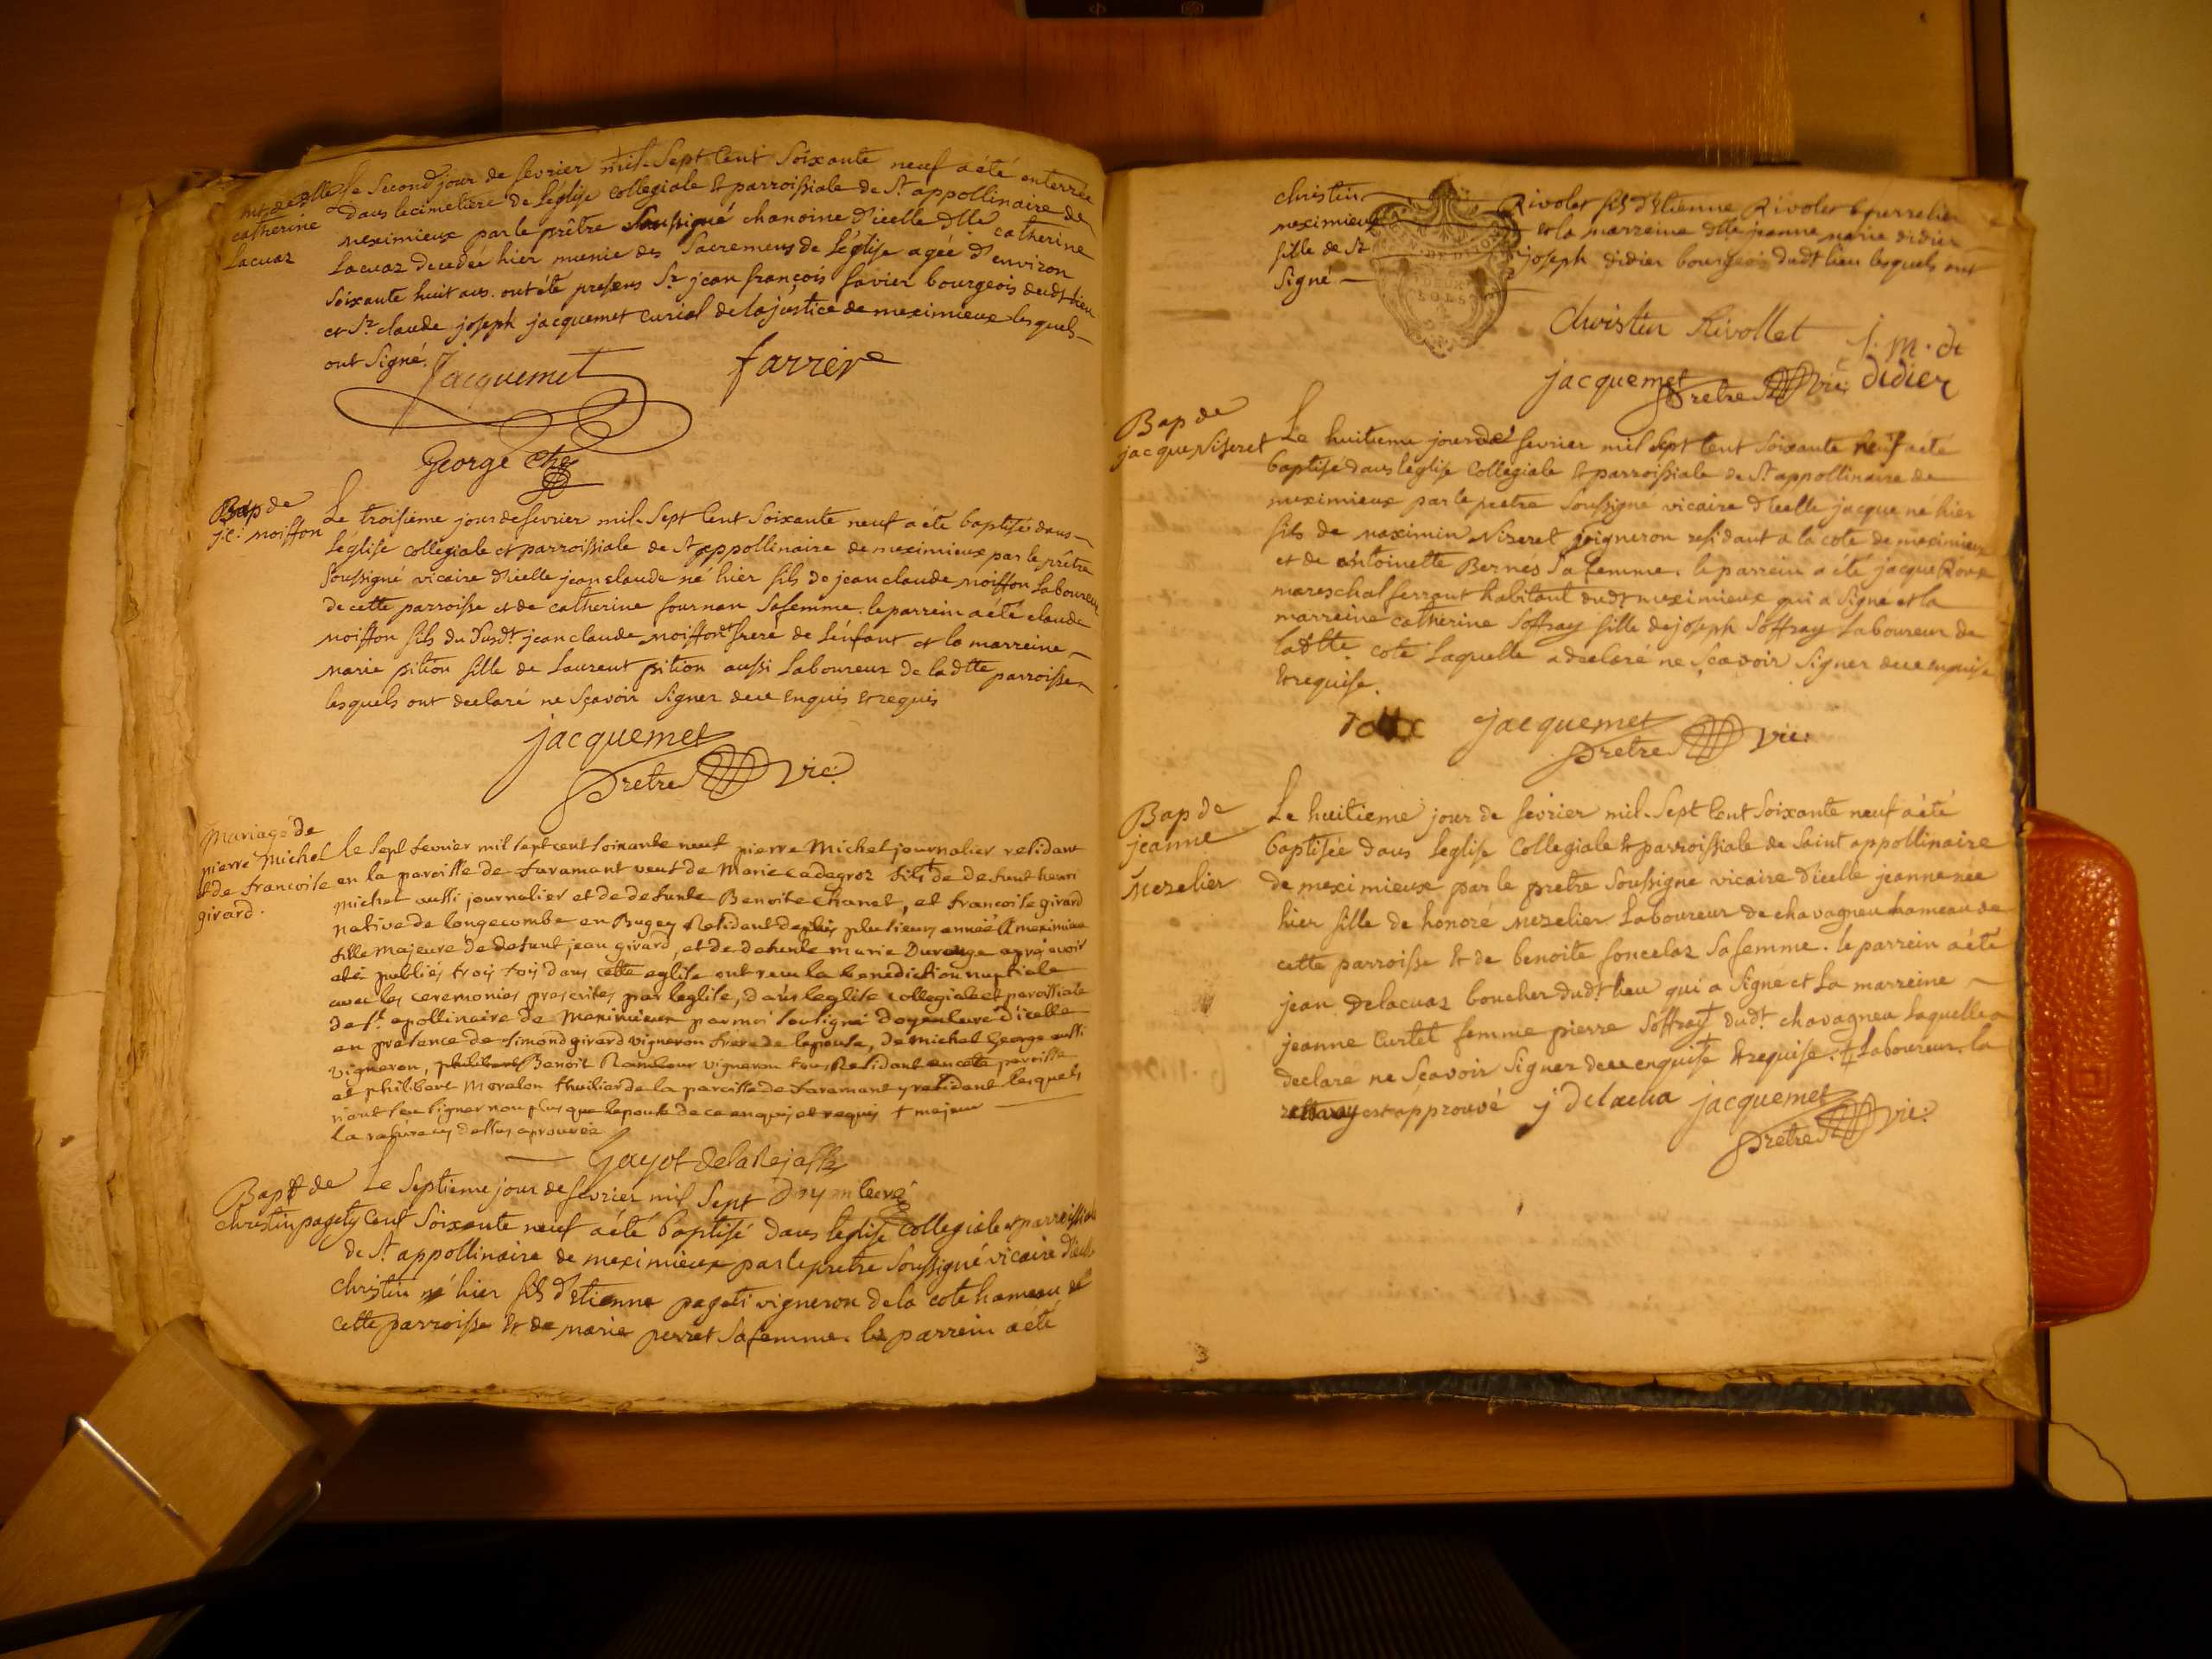 mt de dlle
catherine
Lacuaz
Le second jour de fevrier mil Sept Cent Soixante neuf a été enterrée
dans le cimetiere de Léglise collegiale et parroissiale de St appollinaire de
meximieux par le prêtre soussigné chanoine d'icelle dlle catherine
Lacuaz decedée hier munie des sacremens de Léglise agée d'environ
soixante huit ans. ont été presens Sr jean françois favier bourgeois dudt lieu
et Sr claude joseph jacquemet curial de la justice de meximieux lesquels
ont signé.
Jacquemet
George che
Bap de
j.c. noisson
Le troisieme jour de fevrier mil Sept Cent Soixante neuf a été baptisé dans
Léglise collegiale et parroissiale de St appollinaire de meximieux par le prêtre
soussigné vicaire d'icelle jean claude né hier fils de jean claude noisson Laboureur
de cette parroisse et de catherine fournan sa femme. le parrein a été claude
noisson fils du susdt jean claude noisson et frere de L'enfant et la marreine
marie pition fille de Laurent pition aussi Laboureur de ladtte parroisse
lesquels ont declaré ne sçavoir signer de ce enquis et requis
jacquemet
pretre vic:
Mariage de
pierre Michel
et de francoise
girard.
le sept fevrier mil sept cent soixante neuf pierre Michel journalier residant
en la paroisse de faramant veuf de Marie cadegroz fils de defunt henri
michel aussi journalier et de defunte Benoite Chanel, et francoise girard
native de longecombe en Bugey Residant depuis plusieurs années a meximieux
fille majeure de defunt jean girard, et de defunte marie Durouge apres avoir
eté publiés trois fois dans cette eglise ont recu la benediction nuptiale
avec les ceremonies prescrites par leglise, dans leglise collegiale et paroissiale
de St apollinaire de Meximieux par moi soussigné doyen curé d'icelle
en presence de simond girard vigneron frere de lepouse, de michel George aussi
vigneron, philibert Benoit vigneron tous Residant en cete paroisse
et philibert Morelon thuilier de la paroisse de faramant y residant lesquels
n'ont seu signer non plus que lepouse de ce enquis et requis + majeur
la rature cy dessus aprouvée
Gayot Delarejasse
doyen curé
Bapt de
christin pagety
Le septieme jour de fevrier mil sept
Cent soixante neuf a été baptisé dans leglise collegiale et parroissiale
de St appollinaire de meximieux par le pretre soussigné vicaire d'icelle
christin né hier fils d'etienne pageti vigneron de la cote hameau de
cette parroisse et de marie perret sa femme. le parrein a été
christin Rivolet fils d'etienne Rivolet bourrelier
meximieux et la marreine dlle jeanne marie didier
fille de Sr joseph didier bourgeois dudt lieu lesquels ont
signé
DEUX
SOLS
christin Rivollet
j. m. di
didier
jacquemet
pretre vic:
Bap de
jacque Niseret
Le huitieme jour de fevrier mil sept Cent soixante neuf a été
baptisé dans léglise Collegiale et parroissiale de St appollinaire de
meximieux par le pretre soussigné vicaire d'icelle jacque né hier
fils de maximin Niseret vigneron residant a la cote de meximieux
et de antoinette Bernes sa femme. le parrein a été jacque Roux
mareschal ferrant habitant dudt meximieux qui a signé et la
marreine catherine soffray fille de joseph soffray Laboureur de
ladtte cote laquelle a declaré ne sçavoir signer de ce enquise
et requise.
roux
jacquemet
pretre vic:
Bap de
jeanne
Mezelier
Le huitieme jour de fevrier mil Sept Cent Soixante neuf a été
baptisée dans leglise Collegiale et parroissiale de Saint appollinaire
de meximieux par le pretre soussigné vicaire d'icelle jeanne née
hier fille de honoré mezelier Laboureur de chavagneu hameau de
cette parroisse et de benoite foncelaz sa femme. le parrein a été
jean delacuaz boucher dudt lieu qui a signé et la marreine
jeanne Curtet femme pierre soffray + dudt chavagneu laquelle a
declaré ne sçavoir signer de ce enquise et requise. + Laboureur. la
est approuvé
j delacua
jacquemet
pretre vic:
3